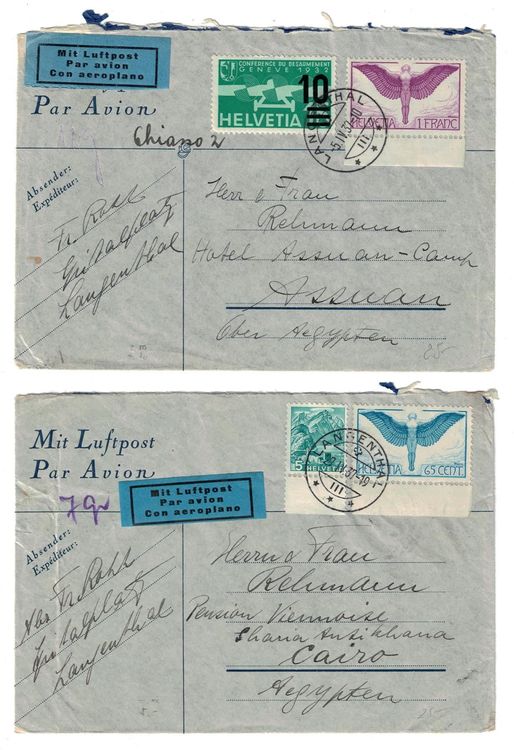 Mit Luftpost
Par avion
Con aeroplano
Par Avion
CONFERENCE DU DESARMEMENT
GENEVE 1932
10
HELVETIA
HELVETIA 1 FRANC
LANGENTHAL
III
Chiasso 2
Absender:
Expéditeur:
Fr. Rohl
Spitalplatz
Langenthal
Herr & Frau
Rehmann
Hotel Assuan-Camp
Assuan
Ober Aegypten
Mit Luftpost
Par Avion
7 gr
Mit Luftpost
Par avion
Con aeroplano
5
HELVETIA
HELVETIA 65 CENT
LANGENTHAL
III
Absender:
Expéditeur:
Abs Fr. Rohl
Spitalplatz
Langenthal
Herrn & Frau
Rehmann
Pension Viennoise
Sharia Antikhana
Cairo
Aegypten